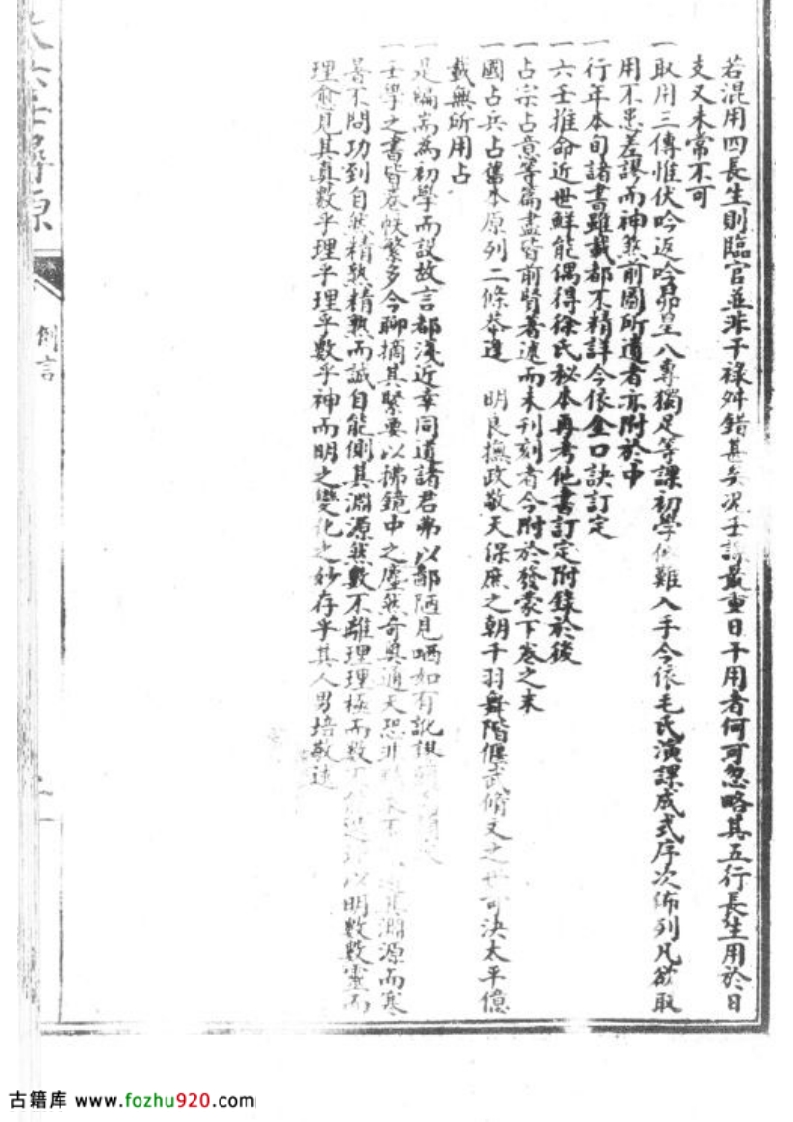 若混用四長生則臨官並非干祿舛錯甚矣況壬課最重日干用者何可忽略其五行長生用於日
支又未常不可
一取用三傳惟伏吟返吟昴星八專獨足等課初學似難入手今依毛氏演課成式序次佈列凡欲取
用不患差謬而神煞前圖所遺者亦附於中
一行年本旬諸書雖載都不精詳今依金口訣訂定
一六壬推命近世鮮能偶得徐氏秘本再考他書訂定附錄於後
一占宗占意等篇盡皆前賢著述而未刊刻者今附於發蒙下卷之末
一國占兵占舊本原列二條恭逢 明良撫政敬天保庶之朝干羽舞階偃武脩文之世可決太平億
載無所用占
一是編耑為初學而設故言都淺近幸同道諸君弗以鄙陋見哂如有訛誤
一壬學之書皆卷帙繁多今聊摘其緊要以拂鏡中之塵然奇奧通天恐非 其淵源而寒
暑不問功到自然精熟精熟而誠自能測其淵源然數不離理理極而數 以明數數靈而
理愈見其真數乎理乎理乎數乎神而明之變化之妙存乎其人男培敬述
大六壬尋源
例言